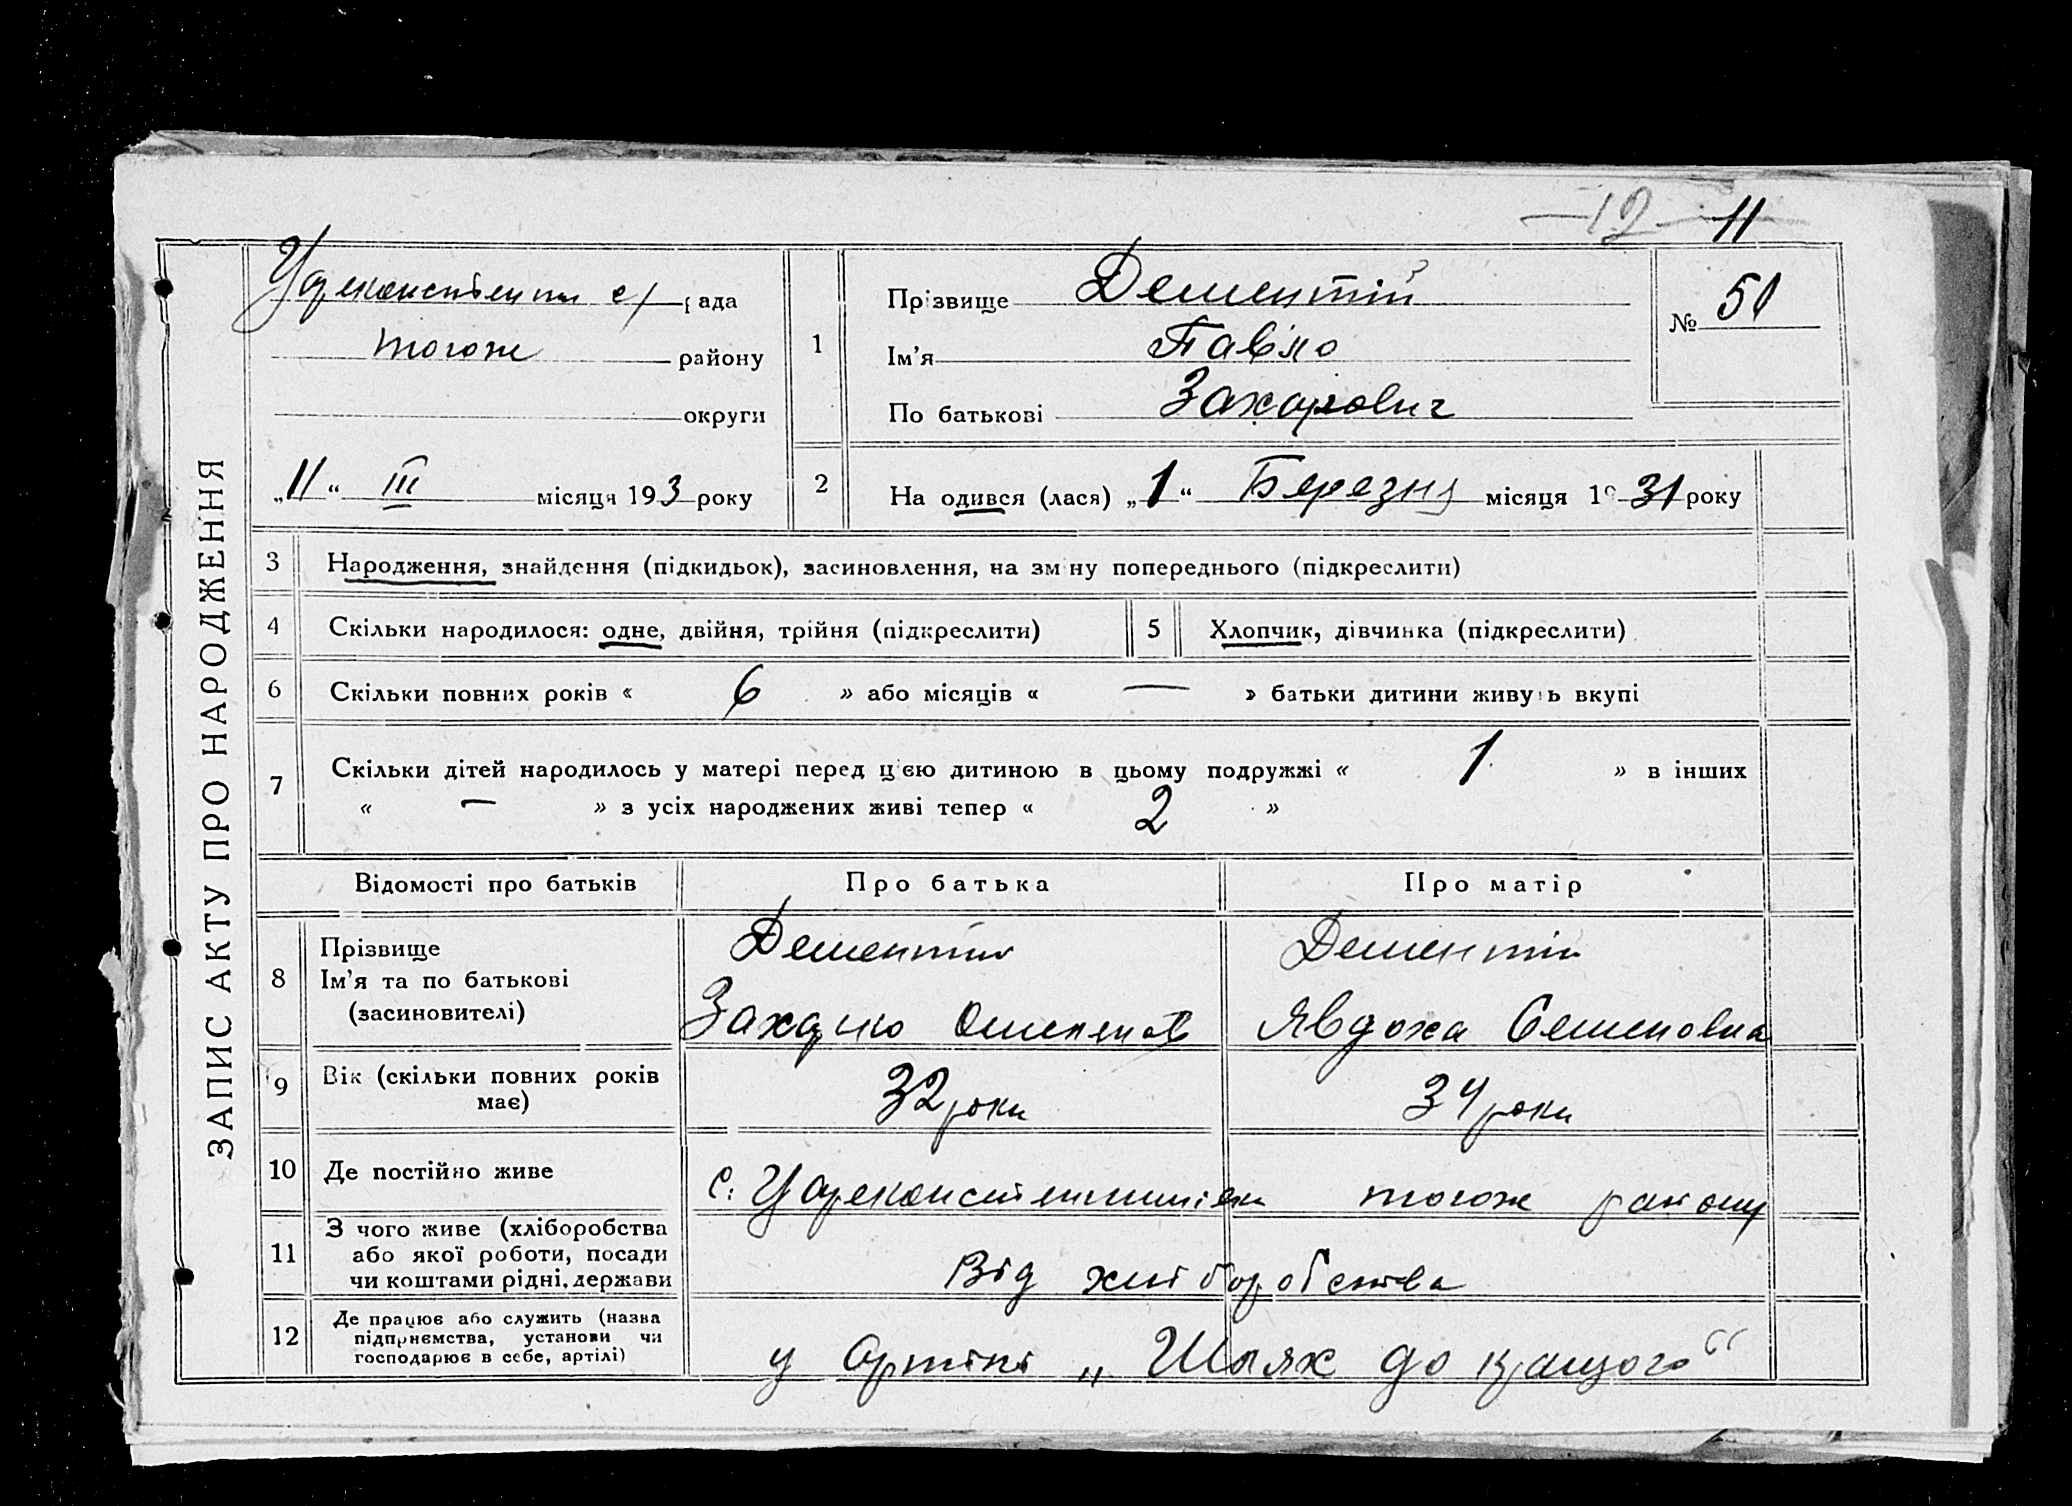 12 11
ЗАПИС АКТУ ПРО НАРОДЖЕННЯ
с/рада
тогож району
округи
„11“ III місяця 193 року
1
Прізвище Дементій
Ім'я Павло
По батькові Захарович
№ 51
2 Народився (лася) „1“ Березня місяця 1931 року
3 Народження, знайдення (підкидьок), засиновлення, на зміну попереднього (підкреслити)
4 Скільки народилося: одне, двійня, трійня (підкреслити) 5 Хлопчик, дівчинка (підкреслити)
6 Скільки повних років « 6 » або місяців « — » батьки дитини живуть вкупі
7 Скільки дітей народилось у матері перед цією дитиною в цьому подружжі « 1 » в інших
« — » з усіх народжених живі тепер « 2 »
Відомості про батьків Про батька Про матір
8 Прізвище Дементій Дементій
Ім'я та по батькові Захарко Явдоха Семеновна
(засиновителі)
9 Вік (скільки повних років має) 32 роки 34 роки
10 Де постійно живе с. тогож району
11 З чого живе (хліборобства
або якої роботи, посади
чи коштами рідні, держави Від хліборобства
12 Де працює або служить (назва
підприємства, установи чи
господарює в себе, артілі) у Артілі „Шлях до кращого“